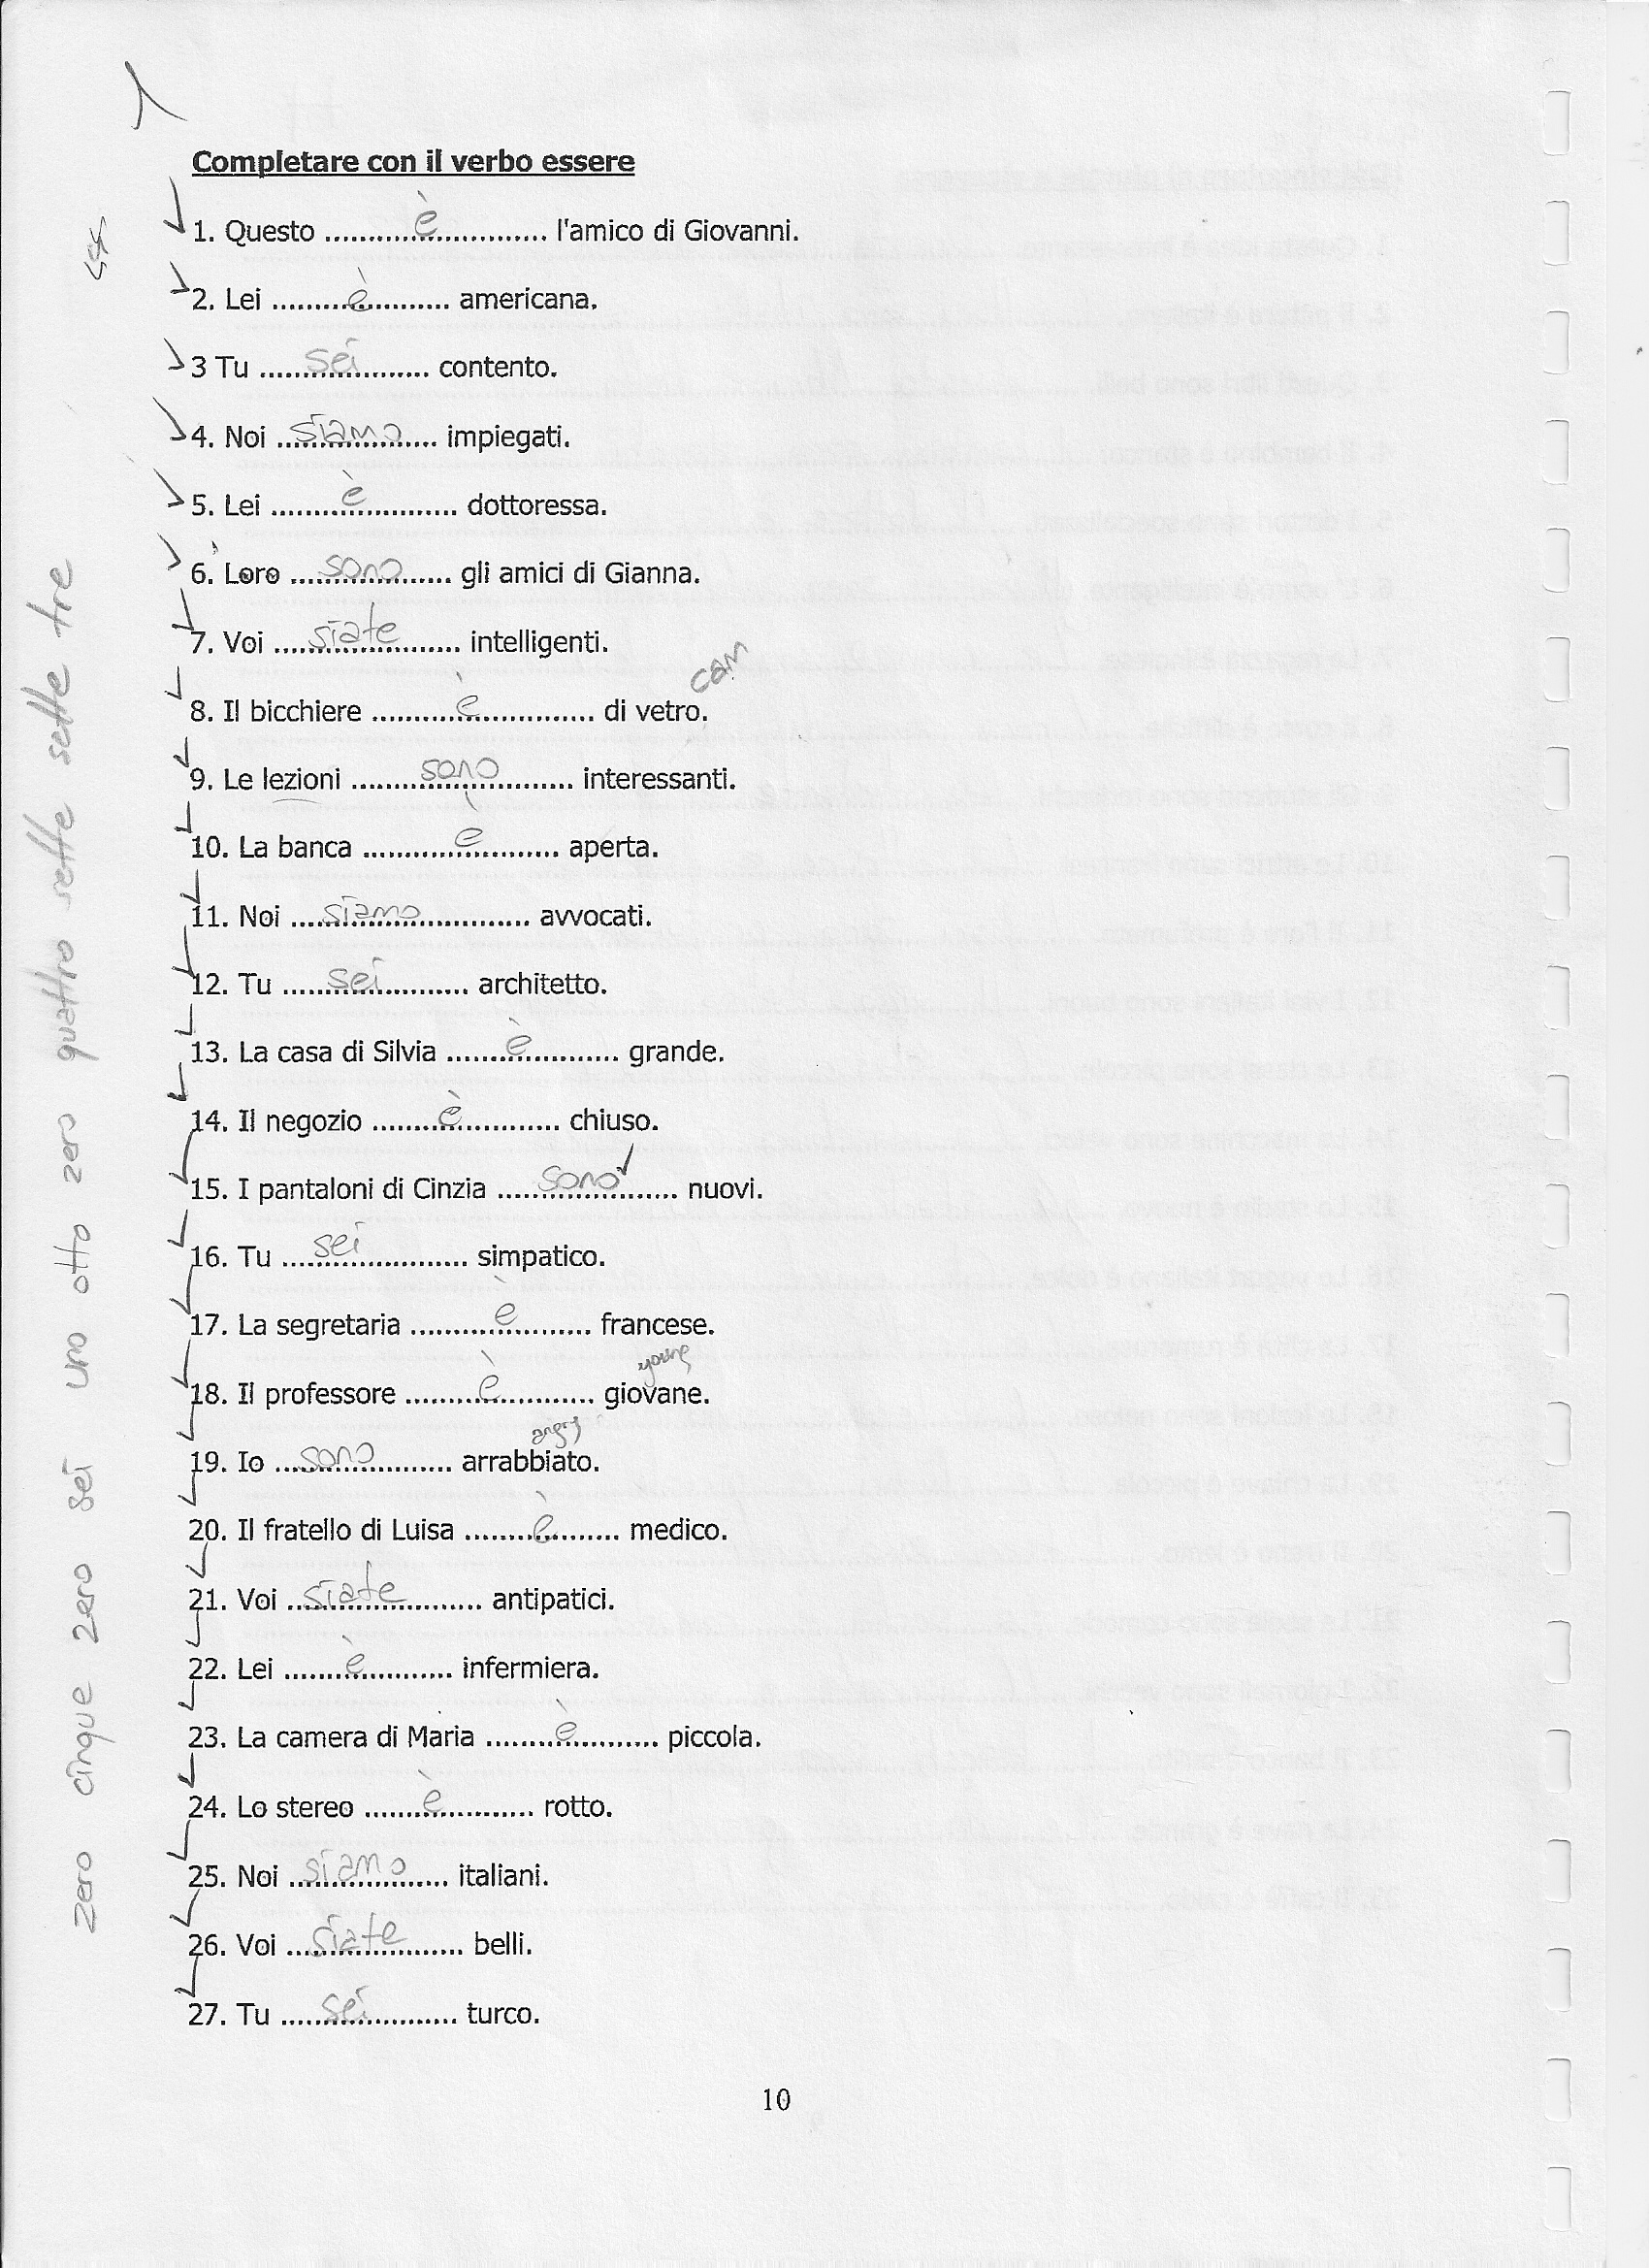 Completare con il verbo essere
1. Questo ............è............ l'amico di Giovanni.
2. Lei .........è......... americana.
3 Tu ......sei...... contento.
4. Noi ...siamo... impiegati.
5. Lei .........è......... dottoressa.
6. Loro ....sono.... gli amici di Gianna.
7. Voi ....siate.... intelligenti.
cam
8. Il bicchiere ............è............ di vetro.
9. Le lezioni .........sono......... interessanti.
10. La banca ............è............ aperta.
11. Noi ....siamo.... avvocati.
12. Tu ......sei...... architetto.
13. La casa di Silvia .........è......... grande.
14. Il negozio .........è......... chiuso.
15. I pantaloni di Cinzia ......sono...... nuovi.
16. Tu ......sei...... simpatico.
17. La segretaria .........è......... francese.
young
18. Il professore .........è......... giovane.
angry
19. Io ....sono.... arrabbiato.
20. Il fratello di Luisa .........è......... medico.
21. Voi ....siate.... antipatici.
22. Lei .........è......... infermiera.
23. La camera di Maria .........è......... piccola.
24. Lo stereo .........è......... rotto.
25. Noi ....siamo.... italiani.
26. Voi ....siate.... belli.
27. Tu ......sei...... turco.
10
zero cinque zero sei uno otto zero quattro sette sette tre